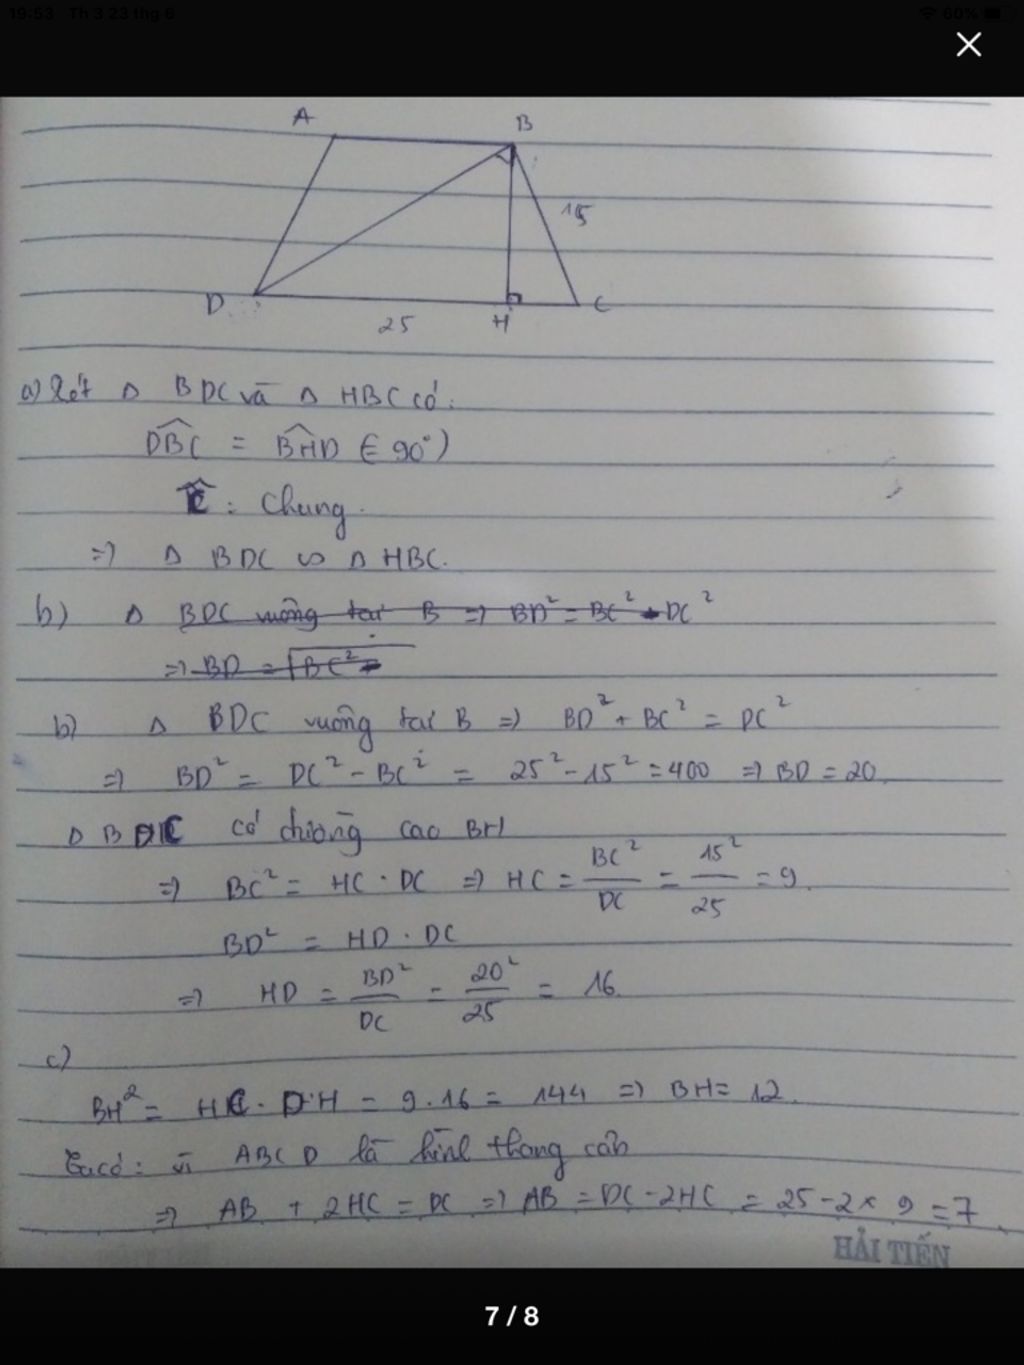 19:53 Th 3 23 thg 6
60%
A
B
15
D
25
H
C
a) Xét Δ BDC và Δ HBC có:
DBC = BHD (= 90°)
C : Chung.
=> Δ BDC ∽ Δ HBC.
b) Δ BDC vuông tại B => BD² = BC² - DC²
=> BD = √BC² -
b) Δ BDC vuông tại B => BD² + BC² = DC²
=> BD² = DC² - BC² = 25² - 15² = 400 => BD = 20
Δ BDC có đường cao BH
=> BC² = HC . DC => HC = BC²/DC = 15²/25 = 9.
BD² = HD . DC
=> HD = BD²/DC = 20²/25 = 16.
c)
BH² = HC . DH = 9.16 = 144 => BH = 12.
Ta có: vì ABCD là hình thang cân
=> AB + 2HC = DC => AB = DC - 2HC = 25 - 2 x 9 = 7.
HẢI TIẾN
7 / 8